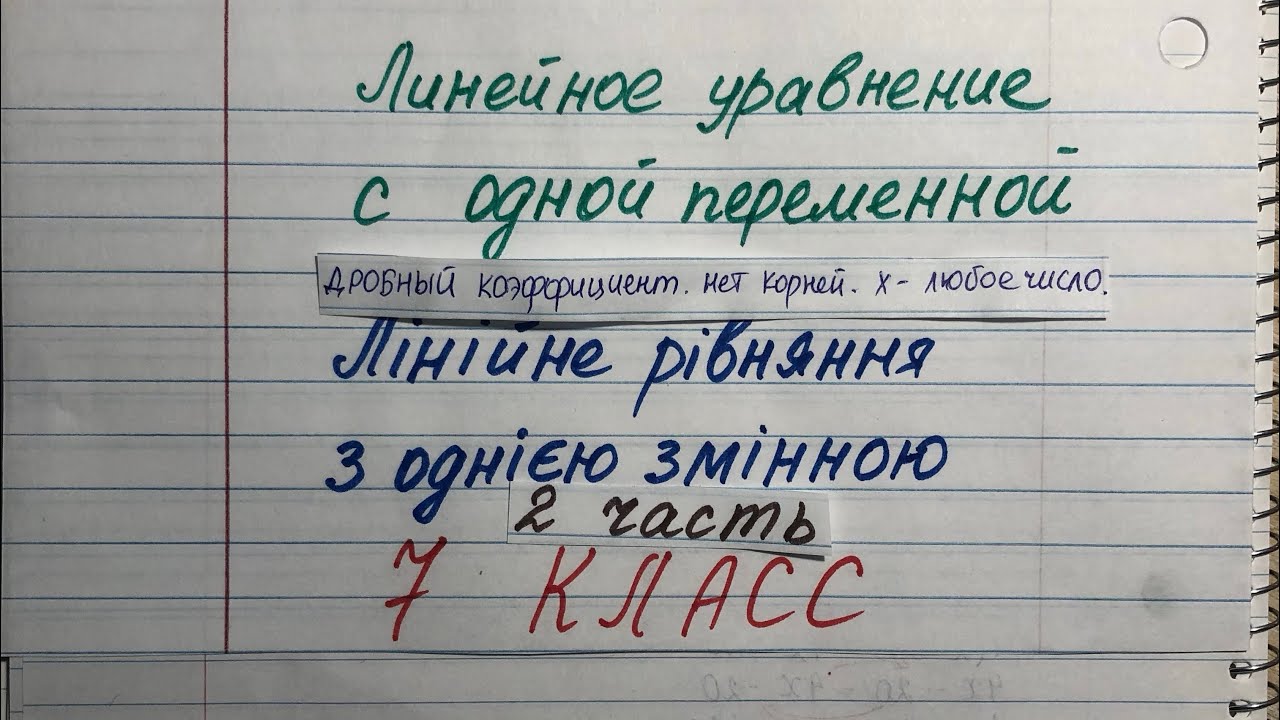 Линейное уравнение
с одной переменной
ДРОБНЫЙ коэффициент. нет корней. х - любое число.
Лінійне рівняння
з однією змінною
2 часть
7 КЛАСС